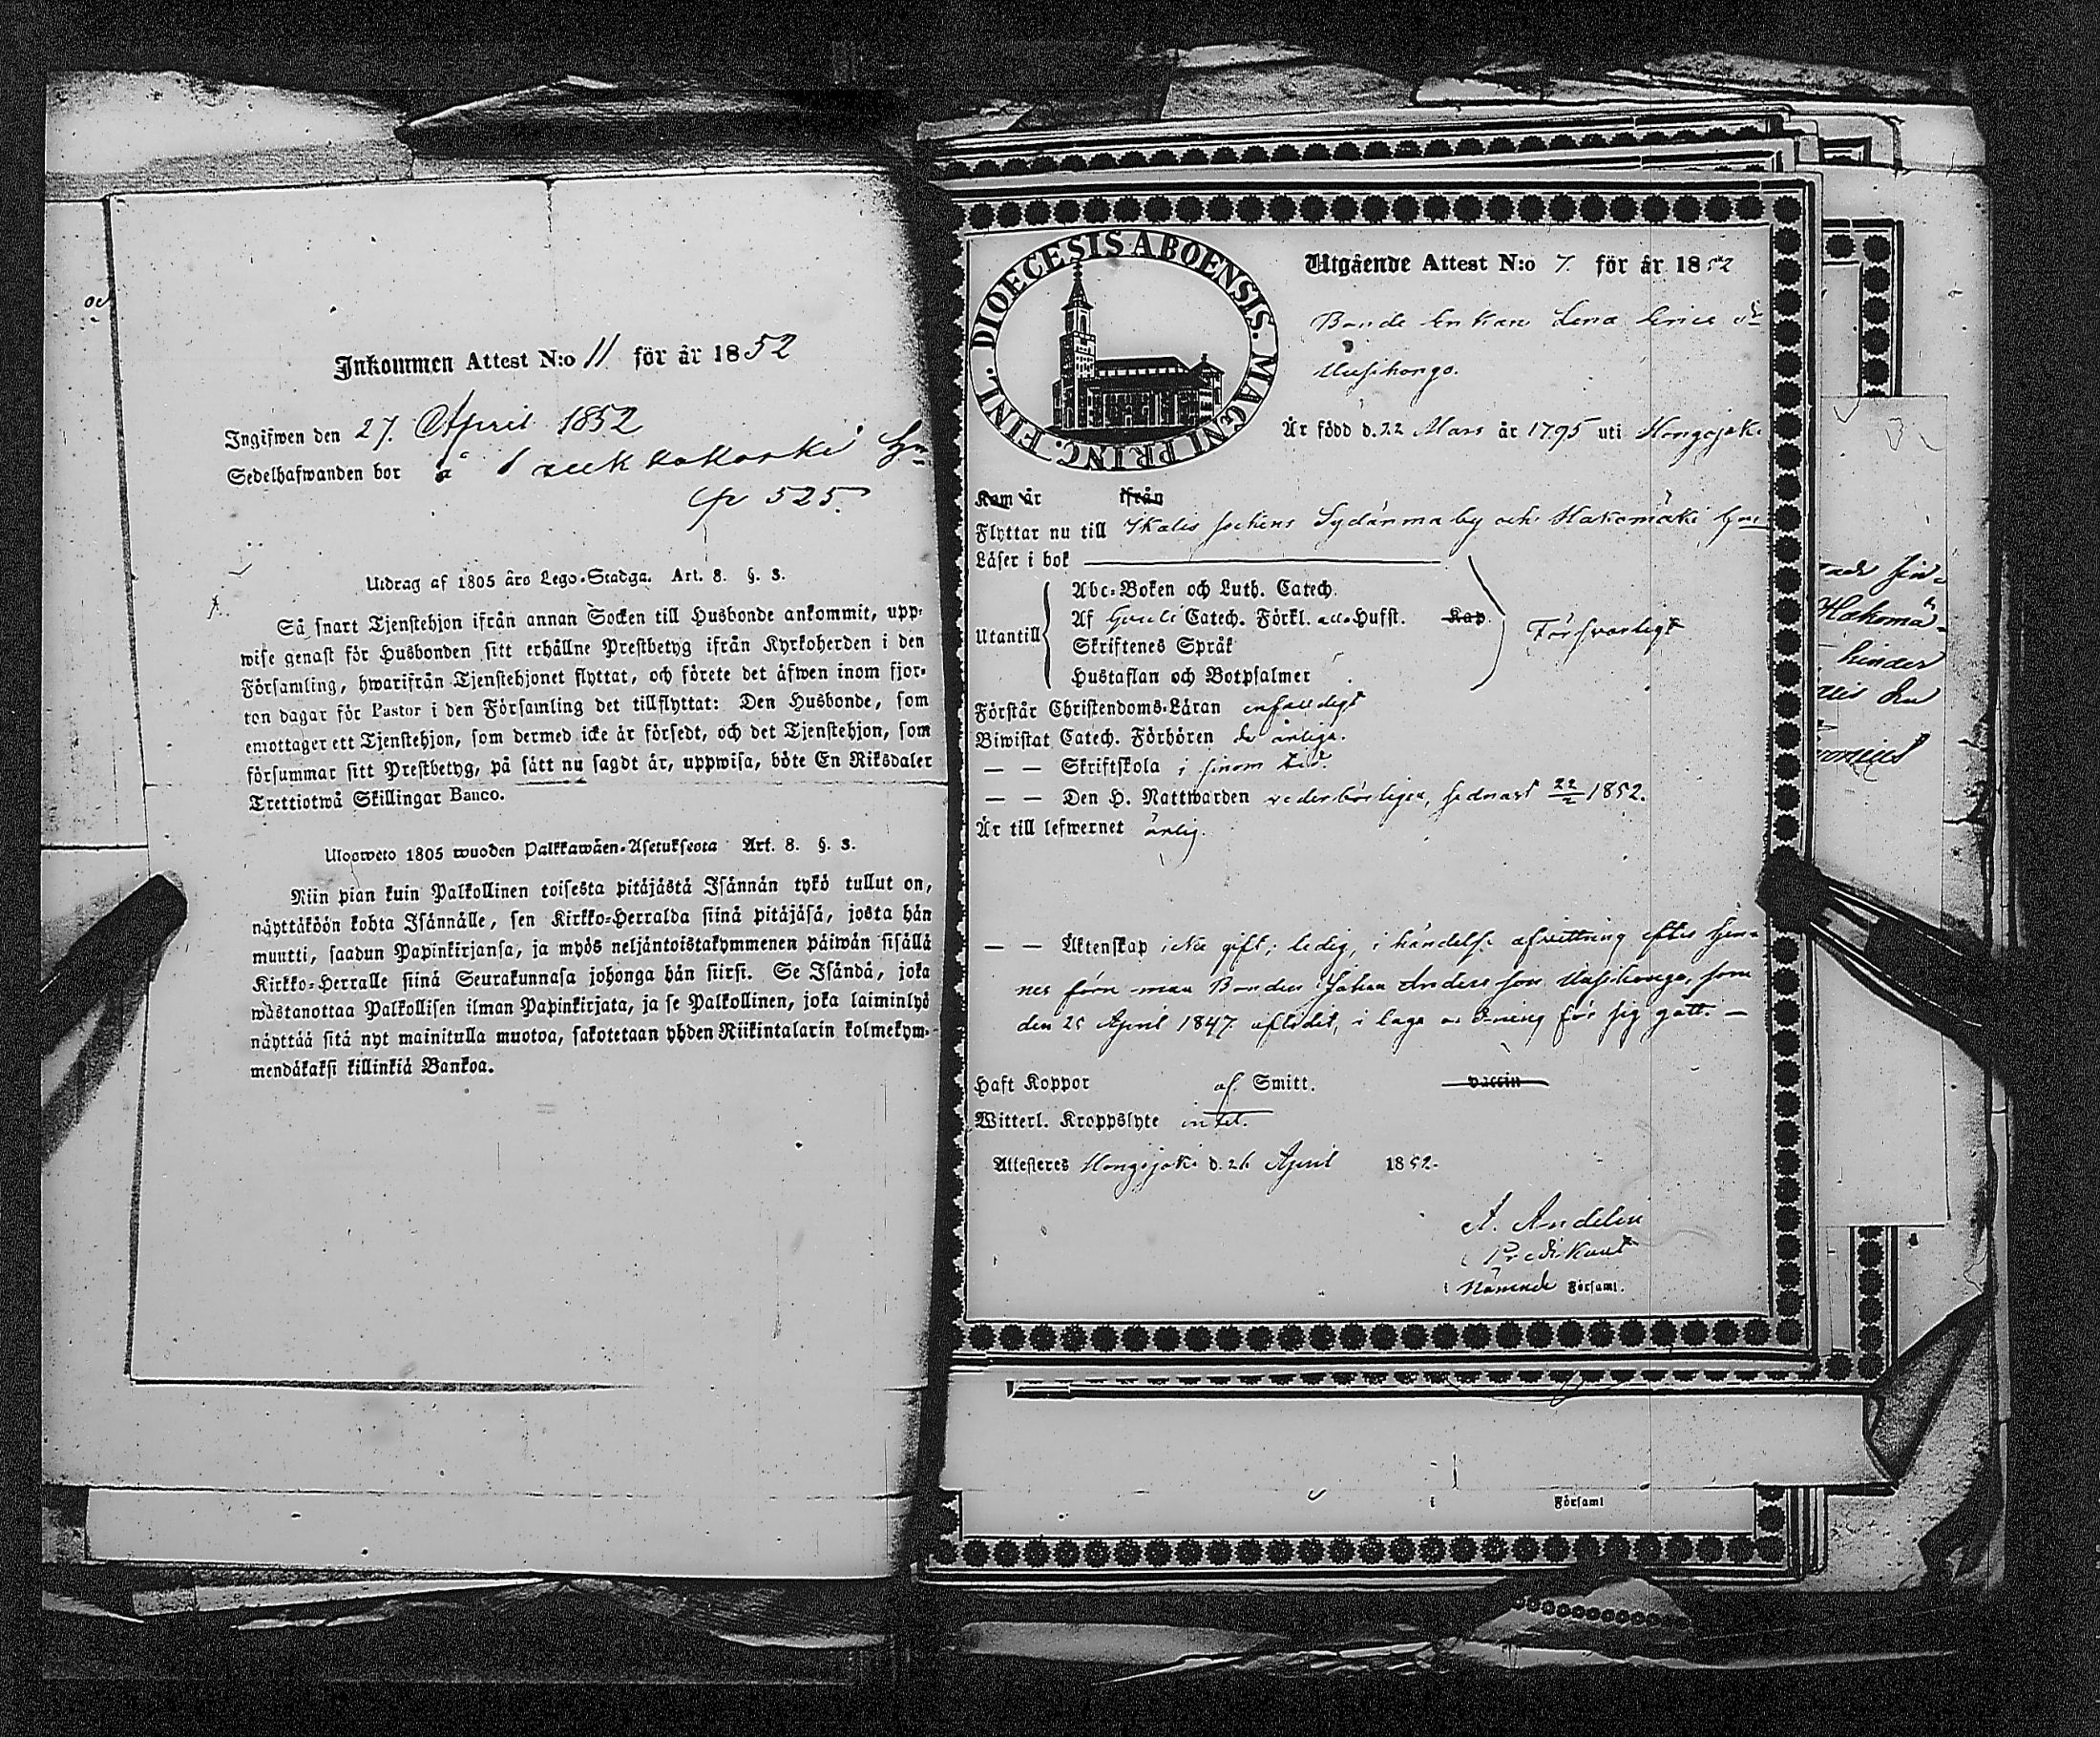 Inkommen Attest N:o 11 för år 1852
Ingifwen den 27. April 1852
Sedelhafwanden bor å
525.
Utdrag af 1805 års Lego-Stadga. Art. 8. §. 3.
Så snart Tjenstehjon ifrån annan Socken till Husbonde ankommit, upp-
wise genast för Husbonden sitt erhållne Prestbetyg ifrån Kyrkoherden i den
Församling, hwarifrån Tjenstehjonet flyttat, och förete det äfwen inom fjor-
ton dagar för Pastor i den Församling det tillflyttat: Den Husbonde, som
emottager ett Tjenstehjon, som dermed icke är försedt, och det Tjenstehjon, som
försummar sitt Prestbetyg, på sätt nu sagdt är, uppwisa, böte En Riksdaler
Trettiotwå Skillingar Banco.
Ulosweto 1805 wuoden Palkkawäen-Asetuksesta Art. 8. §. 3.
Niin pian kuin Palkollinen toisesta pitäjästä Isännän tykö tullut on,
näyttäköön kohta Isännälle, sen Kirkko-Herralda siinä pitäjäsä, josta hän
muutti, saadun Papinkirjansa, ja myös neljäntoistakymmenen päiwän sisällä
Kirkko-Herralle siinä Seurakunnasa johonga hän siirsi. Se Isändä, joka
wastanottaa Palkollisen ilman Papinkirjata, ja se Palkollinen, joka laiminlyö
näyttää sitä nyt mainitulla muotoa, sakotetaan yhden Riikintalarin kolmekym-
mendäkaksi killinkiä Bankoa.
DIOECESIS ABOENSIS. MAGNI PRINC. FINL.
Utgående Attest N:o 7. för år 1852
Bonde Enkan Lena
Uusihongo.
Är född d. 22 Mars år 1795 uti Hongojoki
Kom år ifrån
Flyttar nu till Ikalis sockens Sydänma by och Hakomäki
Läser i bok
Utantill
Abc-Boken och Luth. Catech.
Af Catech. Förkl. Husst. Kap.
Skriftenes Språk
Hustaflan och Botpsalmer
Försvarligt
Förstår Christendoms-Läran enfaldigt
Biwistat Catech. Förhören de årliga.
— — Skriftskola i sinom tid.
— — Den H. Nattwarden vederbörligen, sednast 22/2 1852.
Är till lefwernet ärlig.
— — Äktenskap icke gift; ledig, i händelse afvittring efter hen-
nes förre man Bonden Johan Andersson Uusihongo, som
den 25 April 1847 aflidit, i laga ordning för sig gått. —
Haft Koppor af Smitt. vaccin
Witterl. Kroppslyte intet.
Attesteres Hongojoki d. 26 April 1852.
A. Andelin
Predikant
i Nämnde Församl.
Hakomä-
hinder
den
i Församl